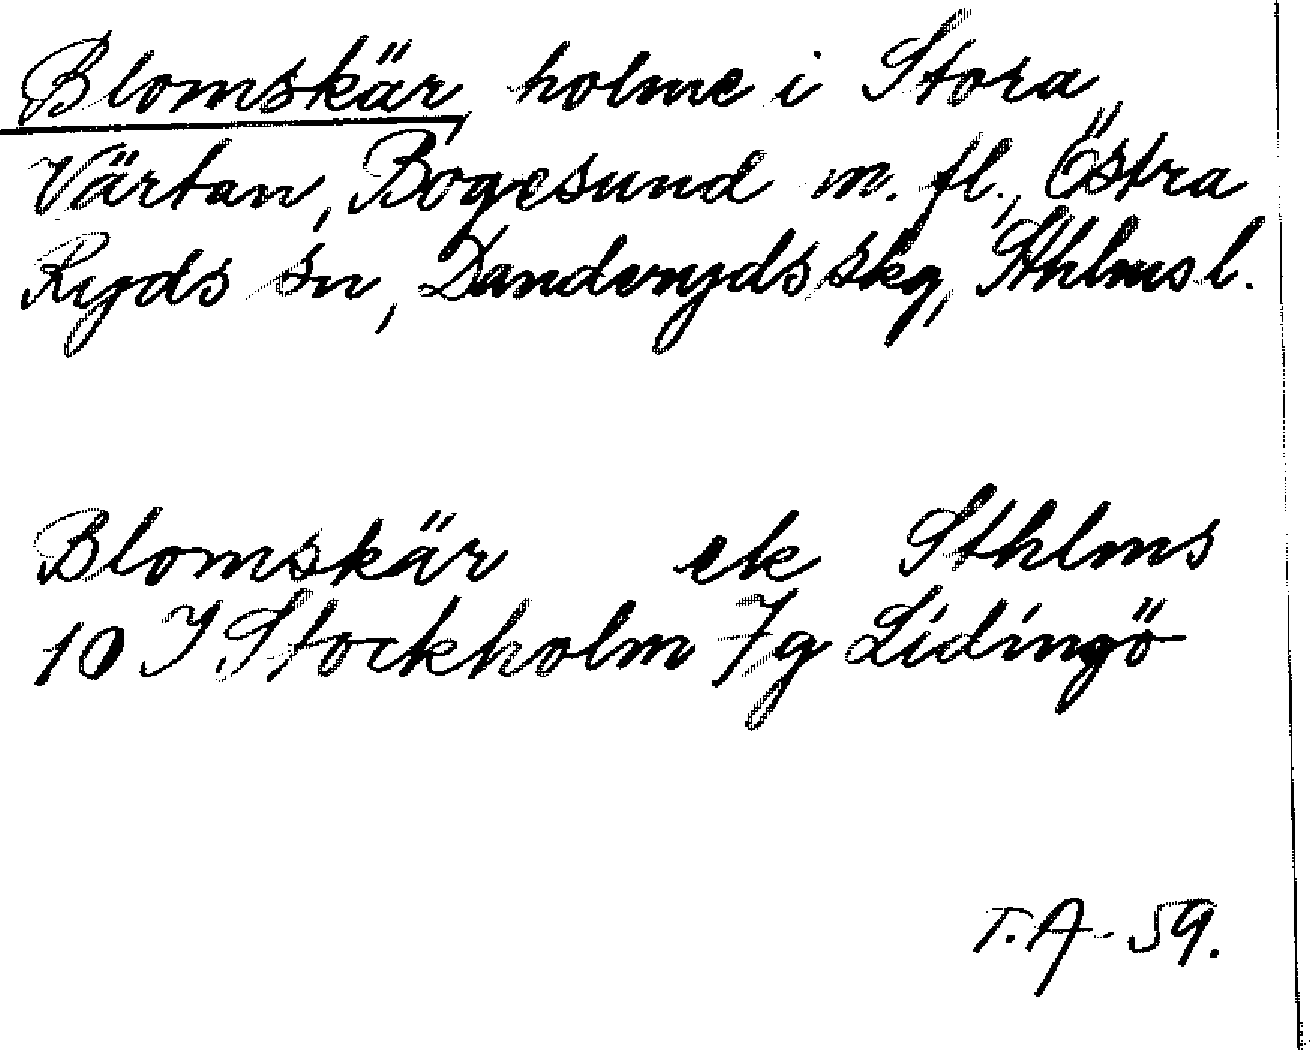 Blomskär, holme i Stora
Värtan, Bogesund m. fl., Östra
Ryds sn, Danderyds skg, Sthlms l.
Blomskär ek Sthlms
10 I Stockholm 7g Lidingö
T.A. 59.